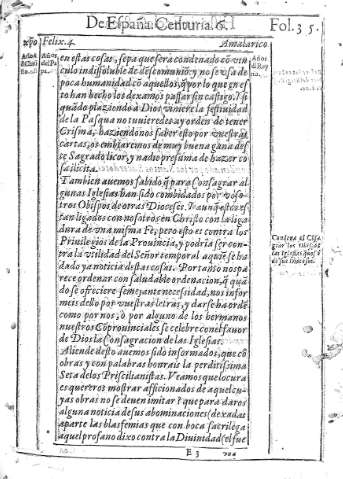 De España. Centuria. 6. Fol. 35.
xp̄o Felix. 4. Amalarico
en estas cosas, sepa que sera condenado cō vin
culo indissoluble de descomunió: y no se vsa de
poca humanidad cō aquellos, q̄ por lo que en es
to han hecho los dexamos passar sin castigo. Y si
quādo plaziendo a Dios viniere la festiuidad
de la Pasqua no tuuieredes ay orden de tener
Crisma, haziendonos saber esto por vuestras
cartas, os embiaremos de muy buena gana des
se Sagrado licor, y nadie presuma de hazer co
sa ilicita.
Tambien auemos sabido, q̄ para Consagrar al
gunas Iglesias han sido combidados por voso-
tros Obispos de otras Diocesis. Y aunq̄ estos es
tan ligados con nosotros en Christo con la liga
dura de vna misma Fe, pero esto es contra los
Priuilegios de la Prouincia, y podria ser con-
tra la vtilidad del Señor temporal aquiē se ha
dado ya noticia destas cosas. Por tanto nos pa
rece ordenar con saludable ordenacion, q̄ quā
do se ofreciere semejante necessidad, nos infor
meis dello por vuestras letras, y darse ha ordē
como por nos, ò por alguno de los hermanos
nuestros Coprouinciales se celebre con el fauor
de Dios la Consagracion de las Iglesias.
Aliende desto auemos sido informados, que cō
obras y con palabras honrais la perditissima
Seta de los Priscilianistas. Veamos que locura
es quereros mostrar afficionados de aquel cu-
yas obras no se deuen imitar? que para daros
alguna noticia de sus abominaciones (dexadas
aparte las blasfemias que con boca sacrilega
aquel profano dixo contra la Diuinidad) el fue
E 3